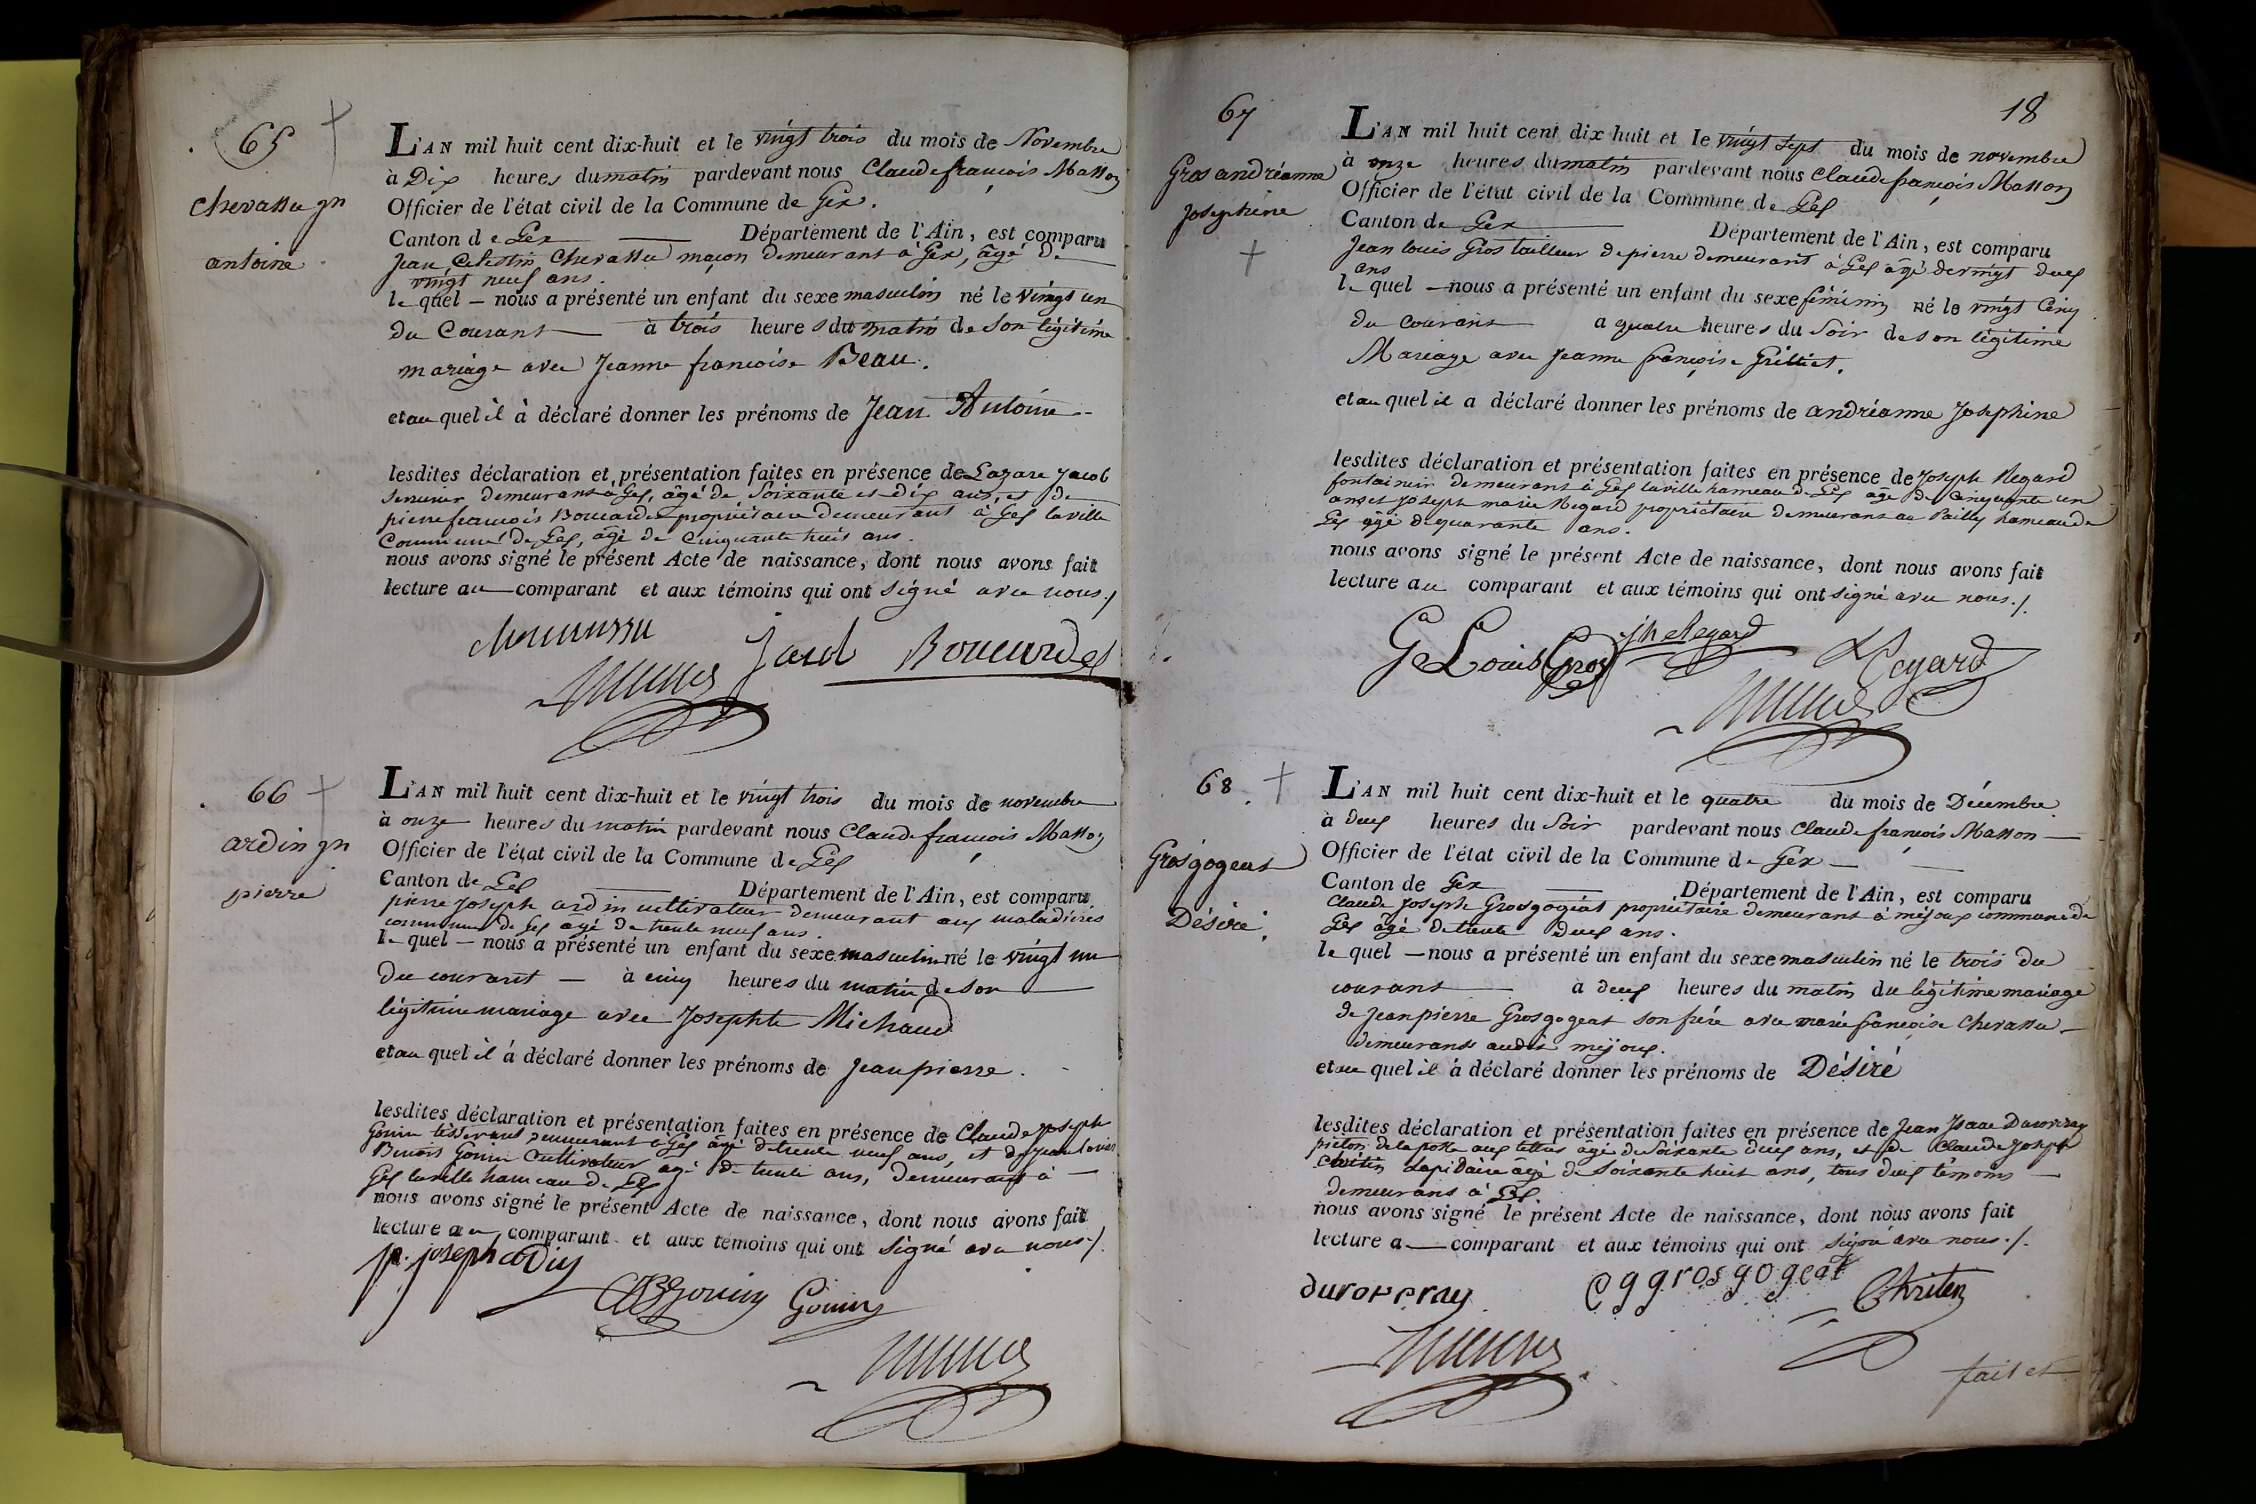 65
Chevassu gn
antoine
L'AN mil huit cent dix-huit et le vingt trois du mois de Novembre
à Dix heures du matin pardevant nous Claude françois Masson
Officier de l'état civil de la Commune de Gex.
Canton de Gex Département de l'Ain, est comparu
Jean Celestin Chevassu maçon demeurant à Gex, âgé De
vingt neuf ans.
le quel — nous a présenté un enfant du sexe masculin né le vingt un
du Courant à trois heures du matin de son légitime
mariage avec Jeanne françoise Beau.
et au quel il à déclaré donner les prénoms de Jean Antoine
lesdites déclaration et présentation faites en présence de Lazare Jacob
Serrurier demeurant à Gex, âgé de Soixante et dix ans, et de
pierre françois Boucardet propriétaire demeurant à Gex laville
Commune de Gex, âgé de Cinquante huit ans.
nous avons signé le présent Acte de naissance, dont nous avons fait
lecture au comparant et aux témoins qui ont signé avec nous./
Jacob Boucardet
66
ardin gn
pierre
L'AN mil huit cent dix-huit et le vingt trois du mois de novembre
à onze heures du matin pardevant nous Claude françois Masson
Officier de l'état civil de la Commune de Gex
Canton de Gex Département de l'Ain, est comparu
pierre Joseph ardin cultivateur demeurant aux maladieres
commune de Gex âgé de trente neuf ans.
le quel — nous a présenté un enfant du sexe masculin né le vingt un
du courant — à cinq heures du matin de son
légitime mariage avec Josephte Michaud
et au quel il à déclaré donner les prénoms de Jean pierre.
lesdites déclaration et présentation faites en présence de Claude Joseph
Gouin tisserand demeurant à Gex âgé de trente neuf ans, et de Jean Louis
Benoit Gouin Cultivateur agé de trente ans, demeurant à
Gex laville hameau de Gex
nous avons signé le présent Acte de naissance, dont nous avons fait
lecture au comparant et aux témoins qui ont signé avec nous./.
p. joseph
Gouin
67
Gros andréanne
Josephine
18
L'AN mil huit cent dix huit et le vingt sept du mois de novembre
à onze heures du matin pardevant nous Claude françois Masson
Officier de l'état civil de la Commune de Gex
Canton de Gex Département de l'Ain, est comparu
Jean louis Gros tailleur de pierre demeurant à Gex âgé de vingt deux
ans
le quel — nous a présenté un enfant du sexe féminin né le vingt Cinq
du courant a quatre heures du Soir de son légitime
Mariage avec Jeanne françoise Grilliet.
et au quel il a déclaré donner les prénoms de andréanne Josephine
lesdites déclaration et présentation faites en présence de Joseph Regard
fontainier demeurant à Gex laville hameau de Gex âgé de Cinquante un
ans et Joseph marie Regard propriétaire demeurant au Pailly hameau de
Gex âgé de quarante ans.
nous avons signé le présent Acte de naissance, dont nous avons fait
lecture au comparant et aux témoins qui ont signé avec nous./.
Louis Gros jh Regard Regard
68
Grosgogeat
Désiré.
L'AN mil huit cent dix-huit et le quatre du mois de Décembre
à deux heures du Soir pardevant nous Claude françois Masson —
Officier de l'état civil de la Commune de Gex —
Canton de Gex Département de l'Ain, est comparu
Claude Joseph Grosgogeat propriétaire demeurant à méjoux commune de
Gex âgé de trente deux ans.
le quel — nous a présenté un enfant du sexe masculin né le trois du
courant a deux heures du matin du légitime mariage
de Jean pierre Grosgogeat son frère avec marie françoise Chevassu —
demeurant audit mejoux.
et au quel il à déclaré donner les prénoms de Désiré
lesdites déclaration et présentation faites en présence de Jean Isaac Duroveray
piéton de la poste aux lettres âgé de Soixante deux ans, et de Claude Joseph
Lapidaire âgé de Soixante huit ans, tous deux témoins
demeurans à Gex.
nous avons signé le présent Acte de naissance, dont nous avons fait
lecture a — comparant et aux témoins qui ont signé avec nous./.
duroveray grosgogeat
fait et